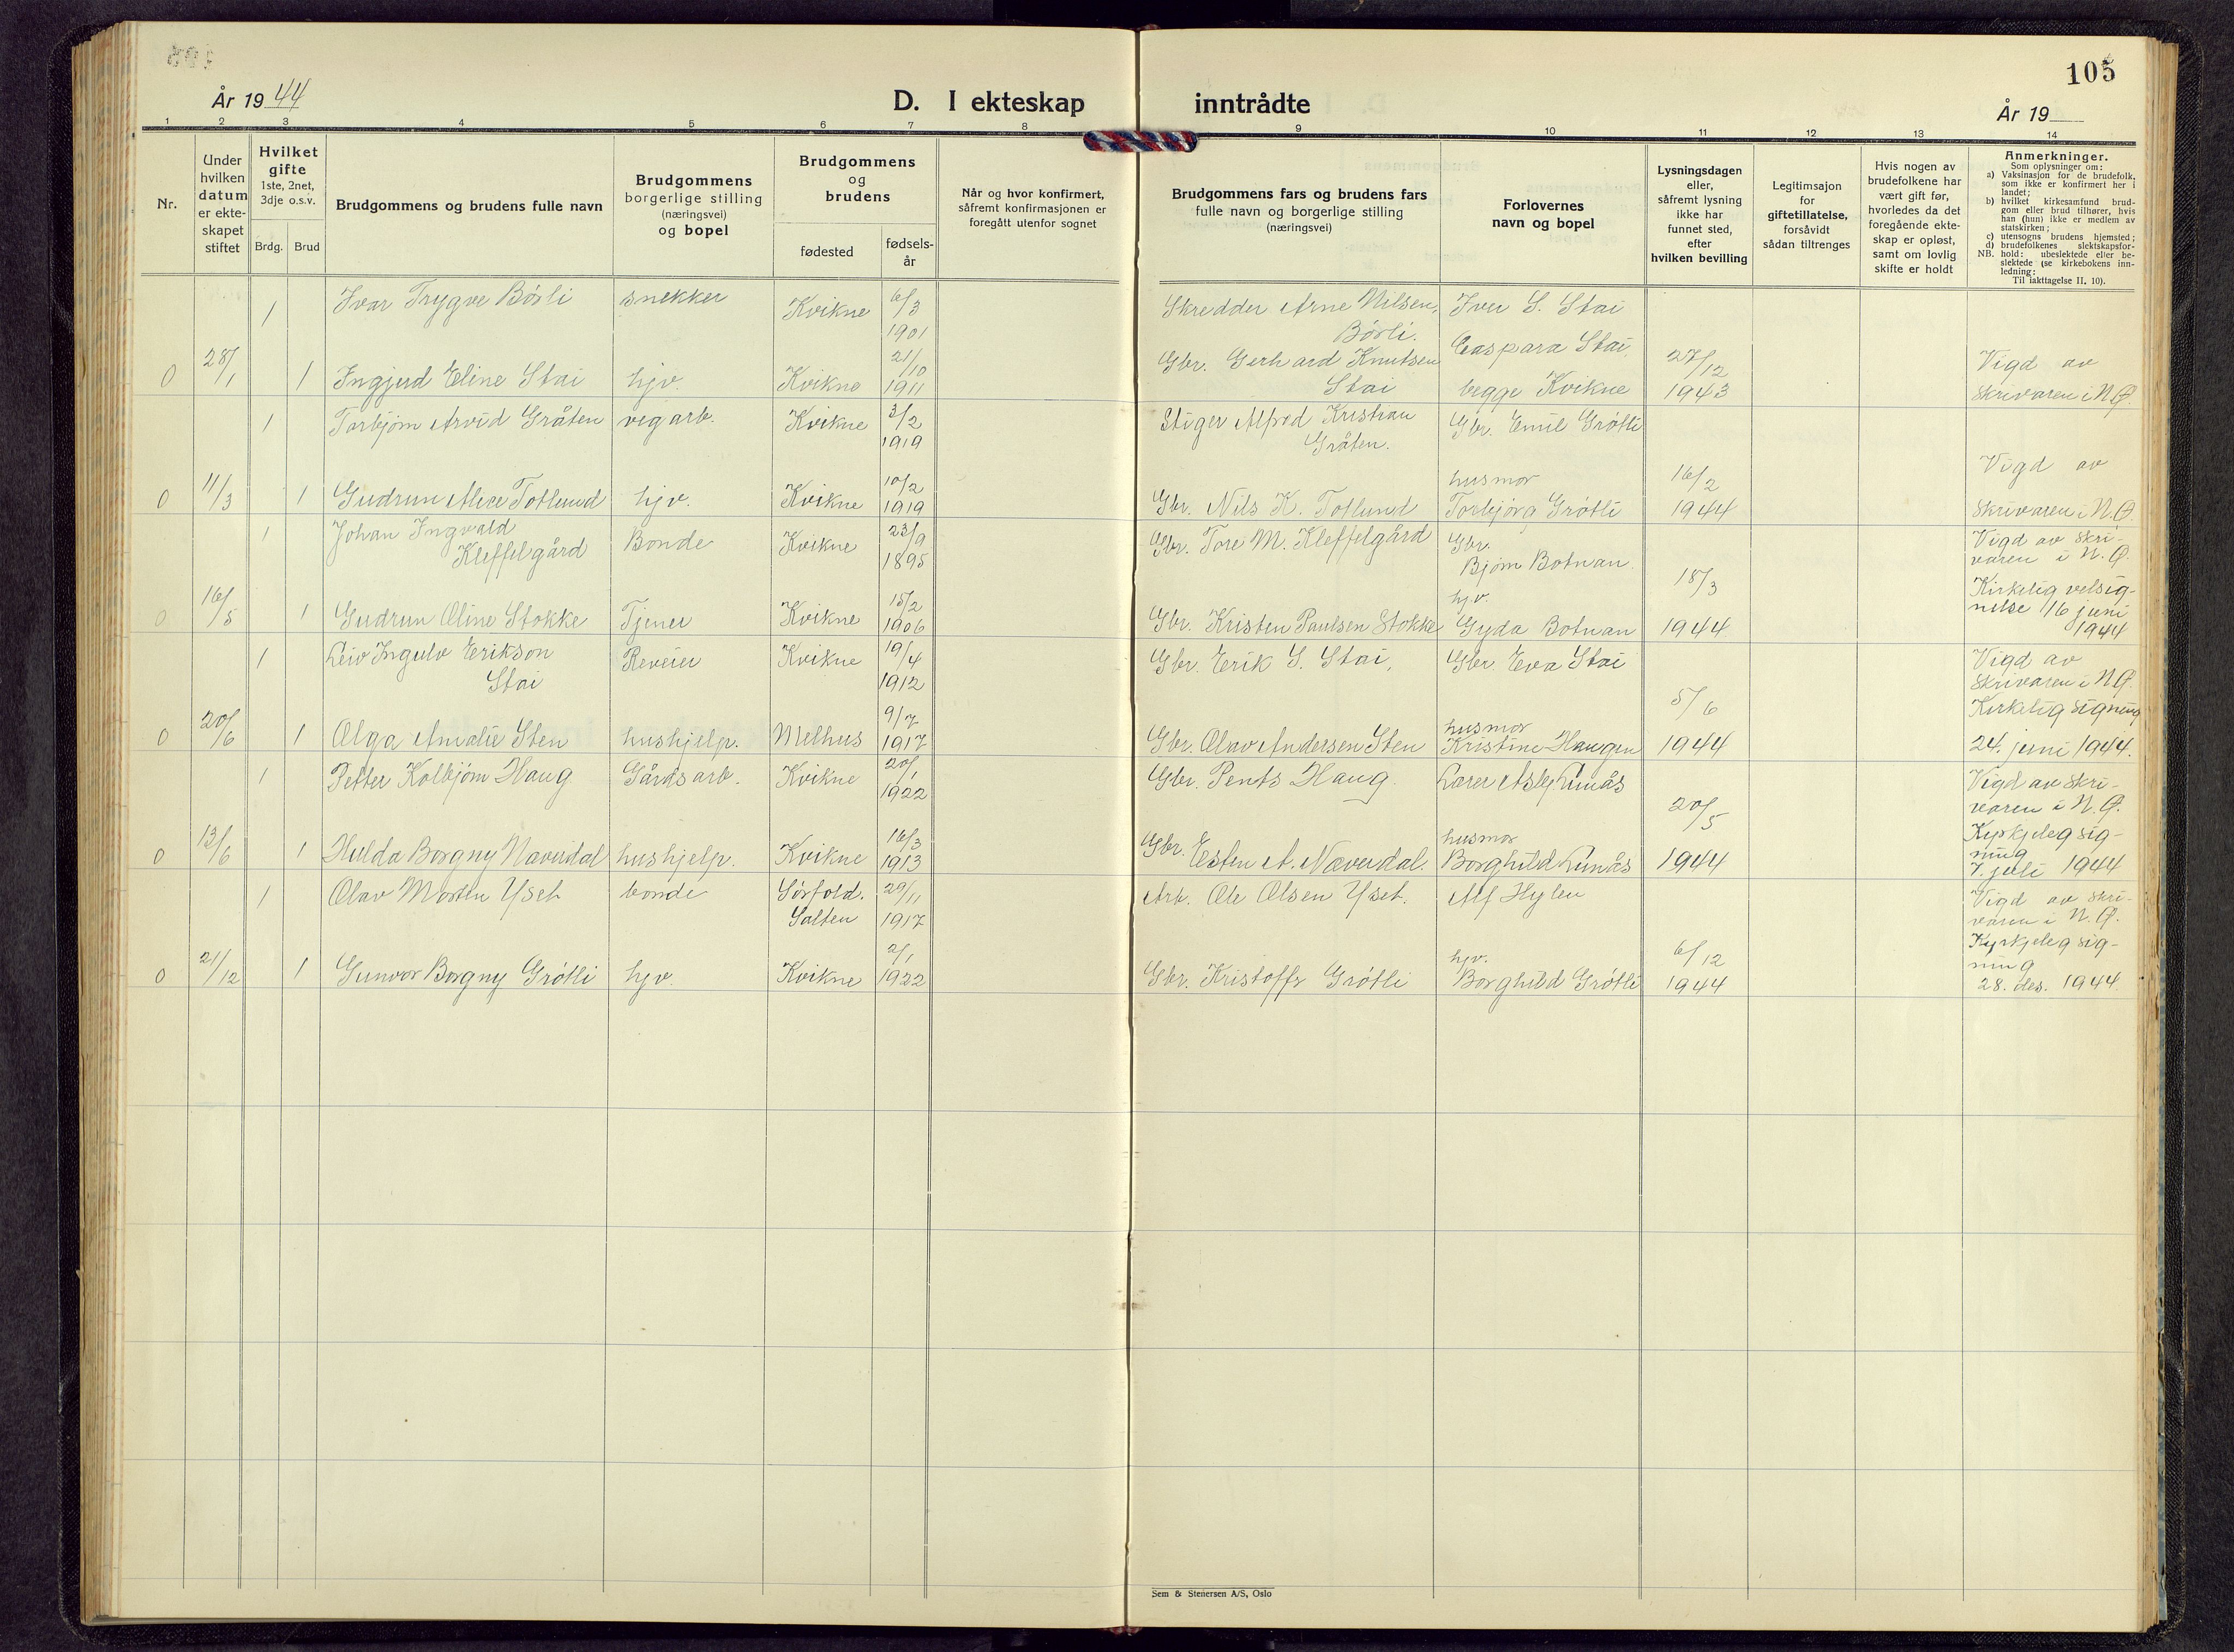 105
År 19 44
D. I ekteskap inntrådte
År 19
1 2 3 4 5 6 7 8 9 10 11 12 13 14
Nr.
Under
hvilken
datum
er ekte-
skapet
stiftet
Hvilket
gifte
1ste, 2net,
3dje o.s.v.
Brdg. Brud
Brudgommens og brudens fulle navn
Brudgommens
borgerlige stilling
(næringsvei)
og bopel
Brudgommens
og
brudens
fødested
fødsels-
år
Når og hvor konfirmert,
såfremt konfirmasjonen er
foregått utenfor sognet
Brudgommens fars og brudens fars
fulle navn og borgerlige stilling
(næringsvei)
Forlovernes
navn og bopel
Lysningsdagen
eller,
såfremt lysning
ikke har
funnet sted,
efter
hvilken bevilling
Legitimsajon
for
giftetillatelse,
forsåvidt
sådan tiltrenges
Hvis nogen av
brudefolkene har
vært gift før,
hvorledes da det
foregående ekte-
skap er opløst,
samt om lovlig
skifte er holdt
Anmerkninger.
Som oplysninger om:
a) Vaksinasjon for de brudefolk,
som ikke er konfirmert her i
landet;
b) hvilket kirkesamfund brud-
gom eller brud tilhører, hvis
han (hun) ikke er medlem av
statskirken;
c) utensogns brudens hjemsted;
d) brudefolkenes slektskapsfor-
NB. hold: ubeslektede eller be-
slektede (se kirkebokens inn-
ledning:
Til iakttagelse II. 10).
1 Ivar Trygve Børli snekker Kvikne 6/3 1901
Skredder Arne Nilsen
Børli.
Iver S. Stai
0 28/1 1 Ingjerd Eline Stai hjv. Kvikne 21/10 1911
Gbr. Gerhard Knutsen
Stai
Caspara Stai,
begge Kvikne
27/12
1943
Vigd av
skrivaren i N.Ø.
1 Torbjørn Arvid Gråten vegarb. Kvikne 3/2 1919
Stiger Alfred Kristian
Gråten.
Gbr. Emil Grøtli
0 11/3 1 Gudrun Alice Totlund hjv. Kvikne 10/2 1919
Gbr. Nils K. Totlund
husmor
Torbjørg Grøtli
16/2
1944
Vigd av
skrivaren i N.Ø.
1 Johan Ingvald
Kleffelgård
Bonde Kvikne 23/9 1895
Gbr. Tore M. Kleffelgård
Gbr.
Bjørn Botnan.
0 16/5 1 Gudrun Oline Stokke Tjener Kvikne 15/2 1906
Gbr. Kristen Paulsen Stokke
hjv.
Gyda Botnan
18/3
1944
Vigd av skri-
varen i N.Ø.
Kirkelig velsig-
nelse 16 juni
1944
1 Leiv Ingulv Erikson
Stai
Reveier Kvikne 19/4 1912
Gbr. Erik S. Stai,
Gbr. Eva Stai
0 20/6 1 Olga Amalie Sten hushjelp. Melhus 9/7 1917
Gbr. Olav Andersen Sten
husmor
Kristine Haugen
5/6
1944
Vigd av
skrivaren i N.Ø.
Kirkelig signing
24. juni 1944.
1 Petter Kolbjørn Haug Gårdsarb. Kvikne 20/1 1922
Gbr. Pents Haug
Lærer Asbj. Lunås
0 13/6 1 Hulda Borgny Næverdal hushjelp. Kvikne 16/3 1913
Gbr. Esten A. Næverdal.
husmor
Borghild Lunås
20/5
1944
Vigd av skri-
varen i N.Ø.
Kyrkjeleg sig-
ning
7. juli 1944
1 Olav Morten Yset bonde Sørfold. Salten 29/11 1917
Arb. Ole Olsen Yset.
Alf Hylen
0 21/12 1 Gunvor Borgny Grøtli hjv. Kvikne 2/1 1922
Gbr. Kristoffer Grøtli
hjv.
Borghild Grøtli
6/12
1944
Vigd av skri-
varen i N.Ø.
Kyrkjeleg sig-
ning
28. des. 1944.
Sem & Stenersen A/S, Oslo